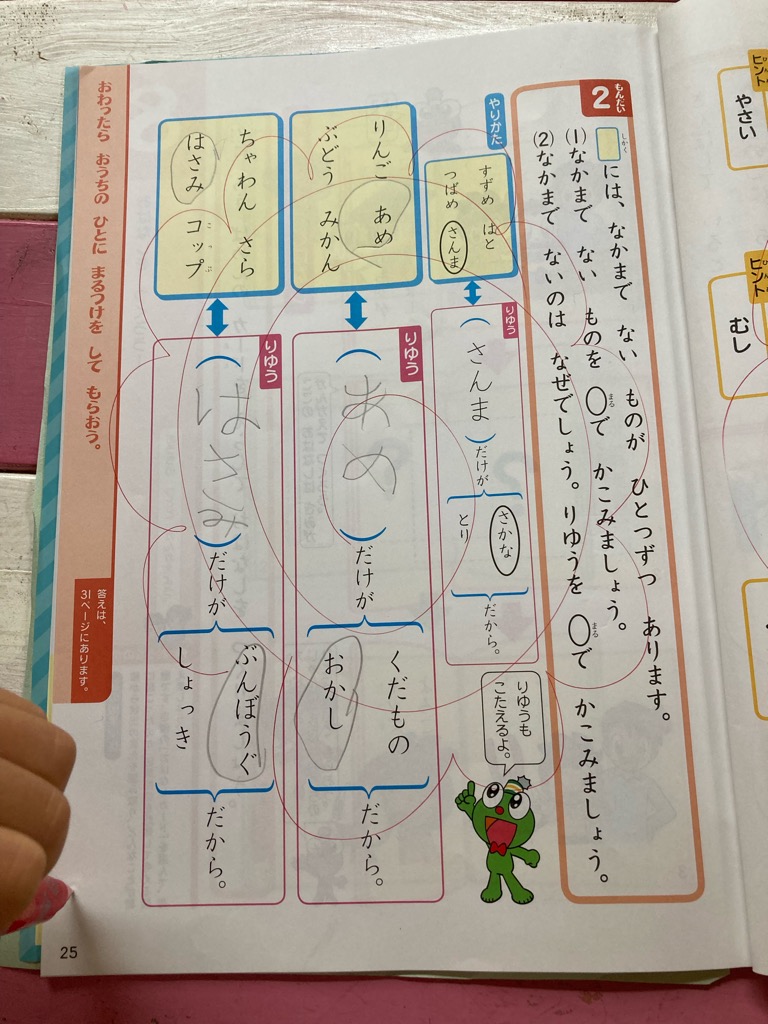 もんだい
2
しかく
には、なかまで ない ものが ひとつずつ あります。
(1)なかまで ない ものを ○で かこみましょう。
まる
(2)なかまで ないのは なぜでしょう。りゆうを ○で かこみましょう。
まる
やりかた
すずめ はと
つばめ さんま
りゆう
(さんま)だけが
さかな
とり
だから。
りゆうも
こたえるよ。
りんご あめ
ぶどう みかん
りゆう
(あめ)だけが
くだもの
おかし
だから。
ちゃわん さら
はさみ コップ
こっぷ
りゆう
(はさみ)だけが
ぶんぼうぐ
しょっき
だから。
おわったら おうちの ひとに まるつけを して もらおう。
答えは、
31ページにあります。
25
ヒント
やさい
ヒント
むし